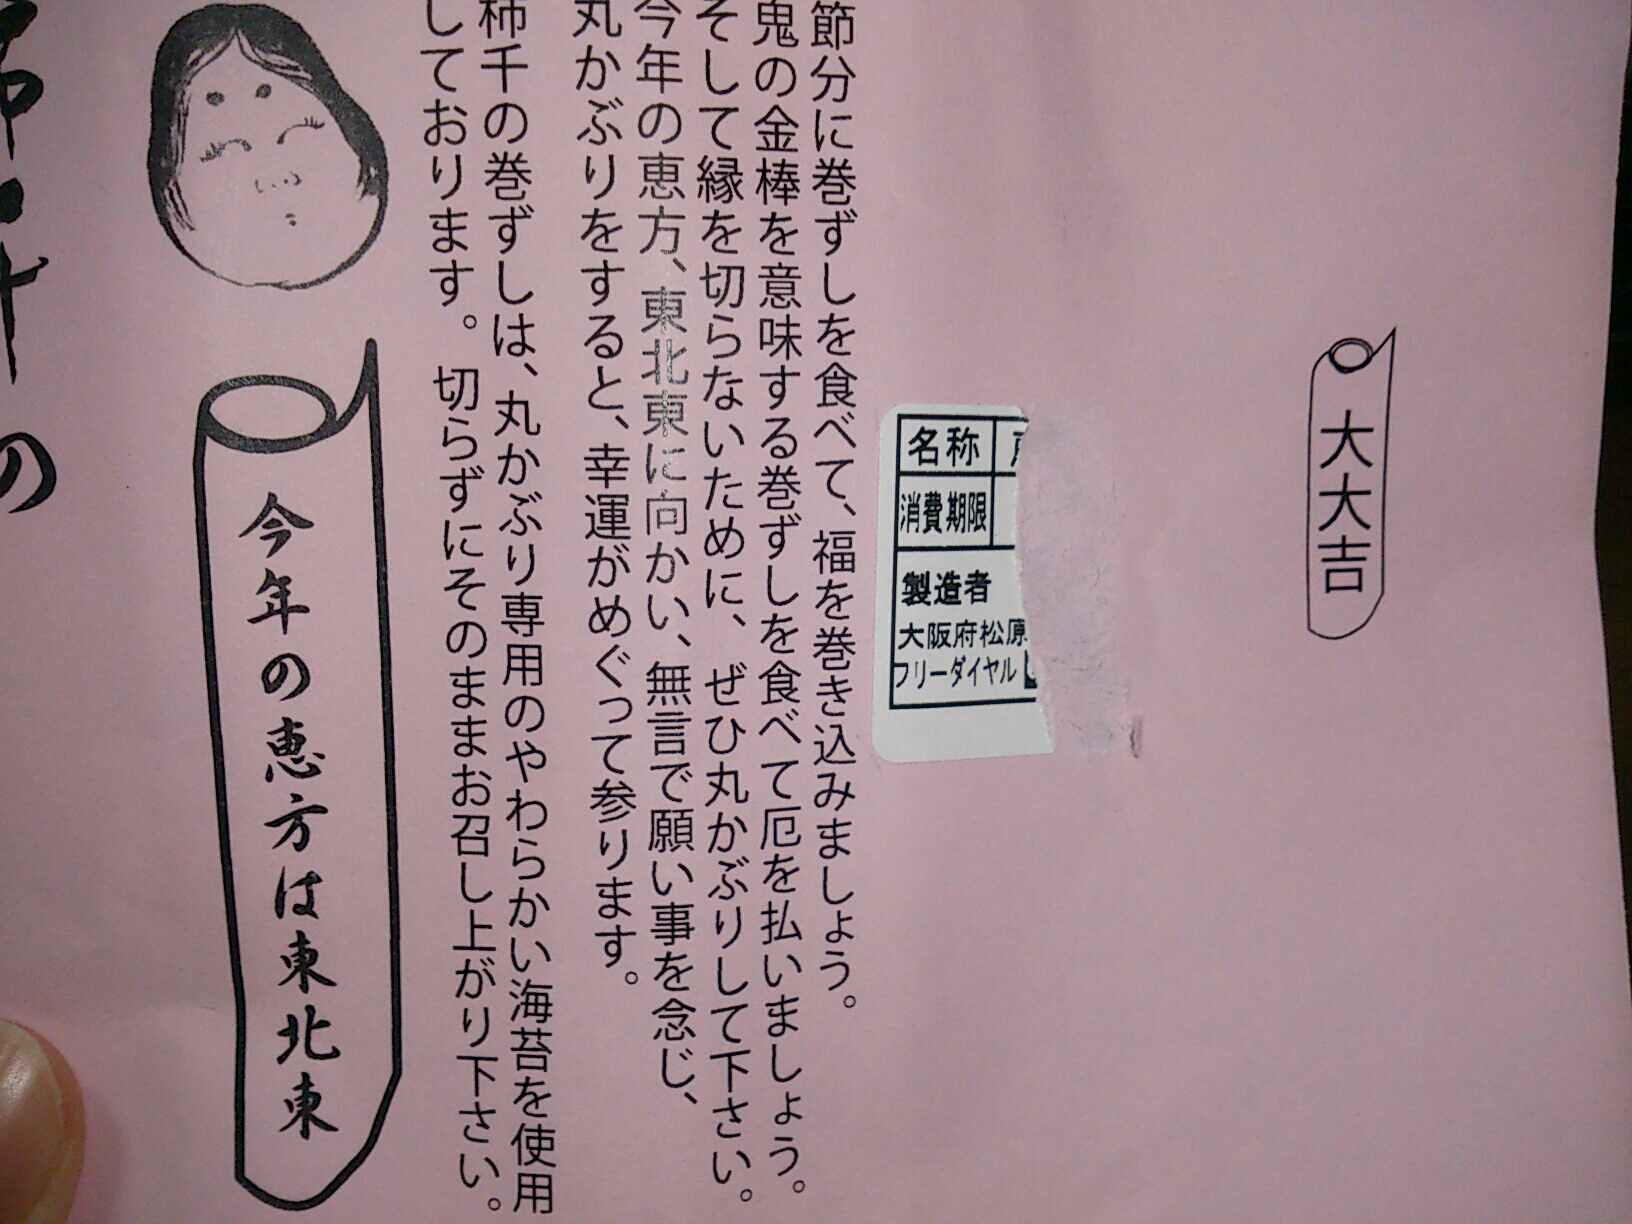 大大吉
名称
消費期限
製造者
大阪府松原
フリーダイヤル
節分に巻ずしを食べて、福を巻き込みましょう。
鬼の金棒を意味する巻ずしを食べて厄を払いましょう。
そして縁を切らないために、ぜひ丸かぶりして下さい。
今年の恵方、東北東に向かい、無言で願い事を念じ、
丸かぶりをすると、幸運がめぐって参ります。
柿千の巻ずしは、丸かぶり専用のやわらかい海苔を使用
しております。切らずにそのままお召し上がり下さい。
今年の恵方は東北東
の